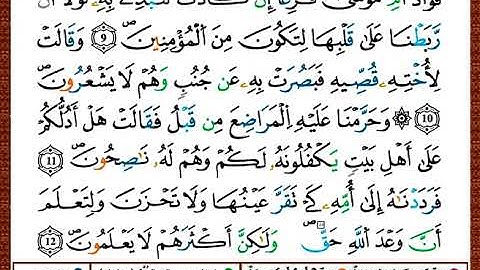 فُؤَادُ أُمِّ مُوسَىٰ فَٰرِغًا إِن كَادَتْ لَتُبْدِے بِهِۦ لَوْلَآ أَن
رَّبَطْنَا عَلَىٰ قَلْبِهَا لِتَكُونَ مِنَ اَلْمُؤْمِنِينَ 9 وَقَالَتْ
لِأُخْتِهِۦ قُصِّيهِ فَبَصُرَتْ بِهِۦ عَن جُنُبٖ وَهُمْ لَا يَشْعُرُونَ
10 ۞ وَحَرَّمْنَا عَلَيْهِ اِلْمَرَاضِعَ مِن قَبْلُ فَقَالَتْ هَلْ أَدُلُّكُمْ
عَلَىٰٓ أَهْلِ بَيْتٖ يَكْفُلُونَهُۥ لَكُمْ وَهُمْ لَهُۥ نَٰصِحُونَ 11
فَرَدَدْنَٰهُ إِلَىٰٓ أُمِّهِۦ كَے تَقَرَّ عَيْنُهَا وَلَا تَحْزَنَ وَلِتَعْلَمَ
أَنَّ وَعْدَ اَللَّهِ حَقّٞ وَلَٰكِنَّ أَكْثَرَهُمْ لَا يَعْلَمُونَ 12